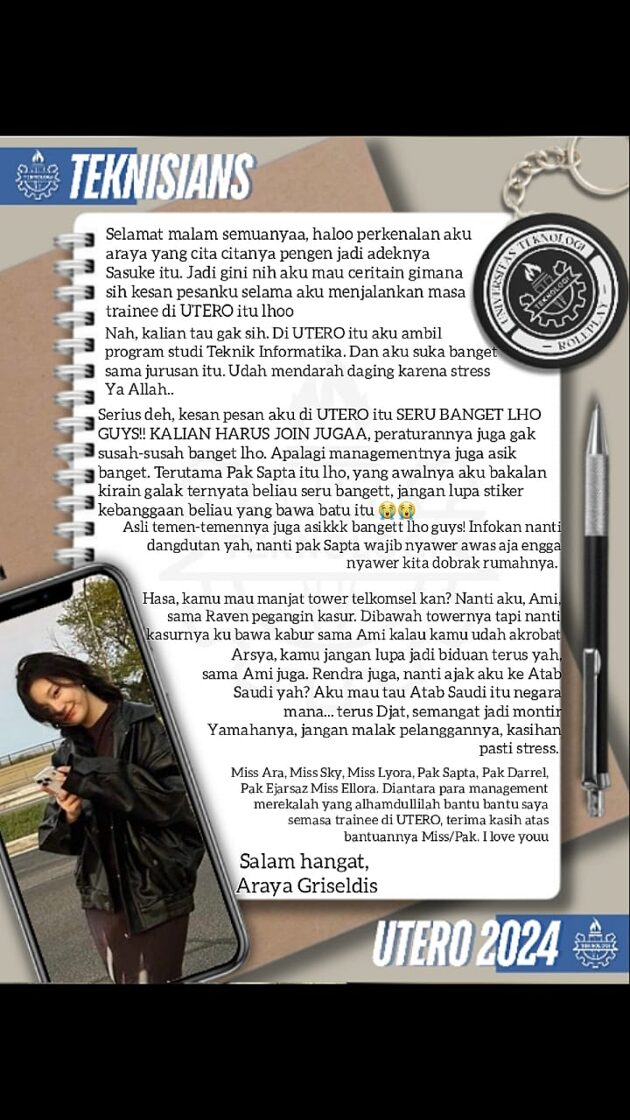 TEKNISIANS
UNIVERSITAS TEKNOLOGI
TEKNOLOGI
— ROLEPLAY —
Selamat malam semuanyaa, haloo perkenalan aku
araya yang cita citanya pengen jadi adeknya
Sasuke itu. Jadi gini nih aku mau ceritain gimana
sih kesan pesanku selama aku menjalankan masa
trainee di UTERO itu lhoo
Nah, kalian tau gak sih. Di UTERO itu aku ambil
program studi Teknik Informatika. Dan aku suka banget
sama jurusan itu. Udah mendarah daging karena stress
Ya Allah..
Serius deh, kesan pesan aku di UTERO itu SERU BANGET LHO
GUYS!! KALIAN HARUS JOIN JUGAA, peraturannya juga gak
susah-susah banget lho. Apalagi managementnya juga asik
banget. Terutama Pak Sapta itu lho, yang awalnya aku bakalan
kirain galak ternyata beliau seru bangett, jangan lupa stiker
kebanggaan beliau yang bawa batu itu 😭😭
Asli temen-temennya juga asikkk bangett lho guys! Infokan nanti
dangdutan yah, nanti pak Sapta wajib nyawer awas aja engga
nyawer kita dobrak rumahnya.
Hasa, kamu mau manjat tower telkomsel kan? Nanti aku, Ami,
sama Raven pegangin kasur. Dibawah towernya tapi nanti
kasurnya ku bawa kabur sama Ami kalau kamu udah akrobat
Arsya, kamu jangan lupa jadi biduan terus yah,
sama Ami juga. Rendra juga, nanti ajak aku ke Atab
Saudi yah? Aku mau tau Atab Saudi itu negara
mana... terus Djat, semangat jadi montir
Yamahanya, jangan malak pelanggannya, kasihan
pasti stress.
Miss Ara, Miss Sky, Miss Lyora, Pak Sapta, Pak Darrel,
Pak Ejarsaz Miss Ellora. Diantara para management
merekalah yang alhamdullilah bantu bantu saya
semasa trainee di UTERO, terima kasih atas
bantuannya Miss/Pak. I love youu
Salam hangat,
Araya Griseldis
UTERO 2024